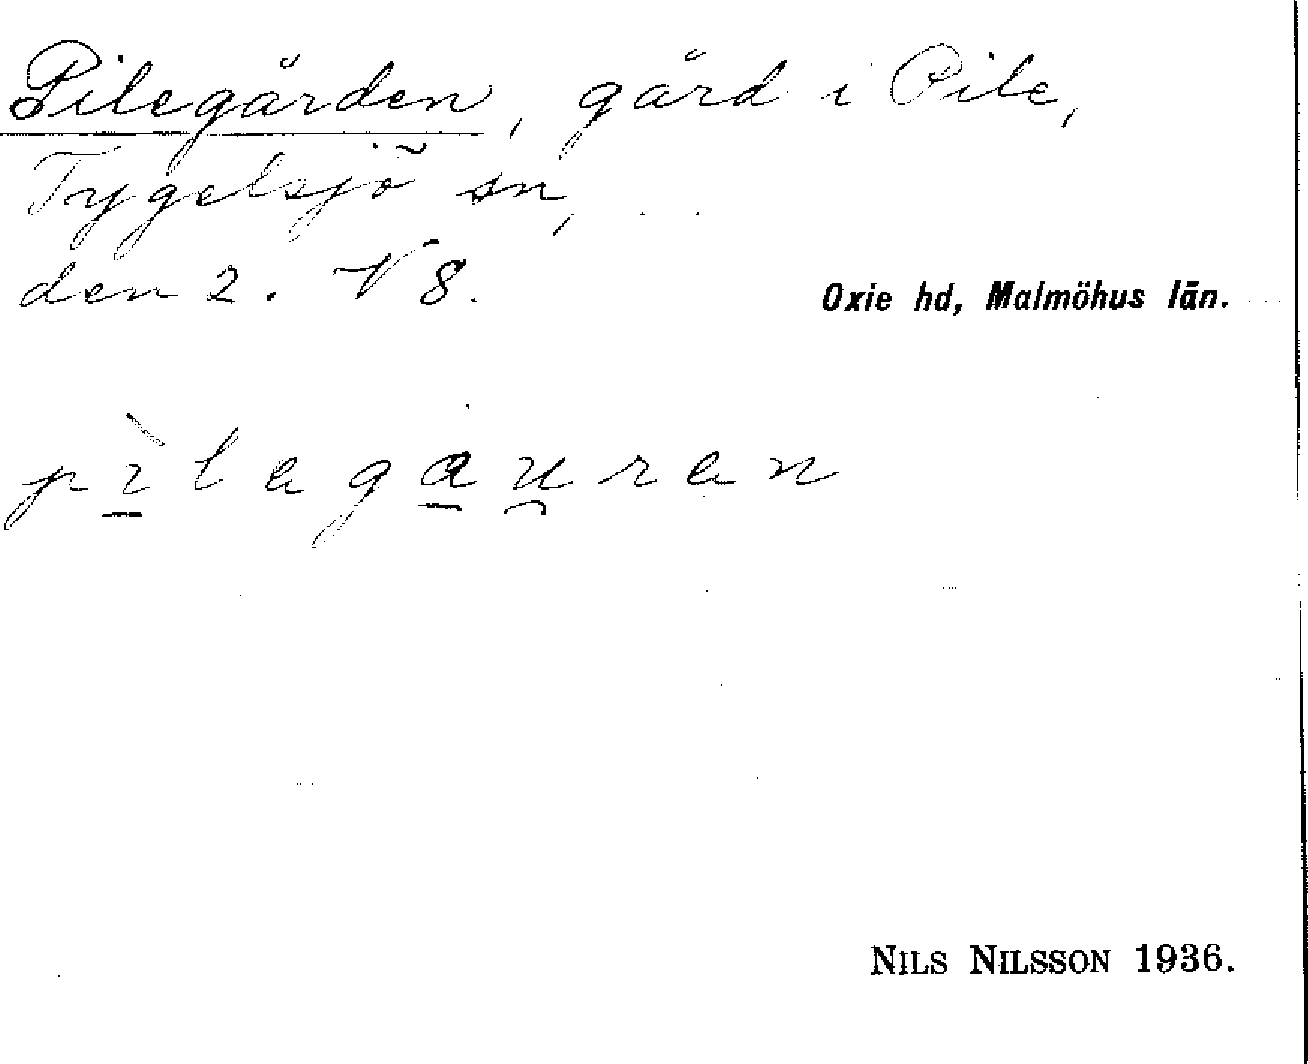 Pilegården, gård i Pile,
Tygelsjö sn,
den 2. N 8.
Oxie hd, Malmöhus län.
pìlegauren
NILS NILSSON 1936.